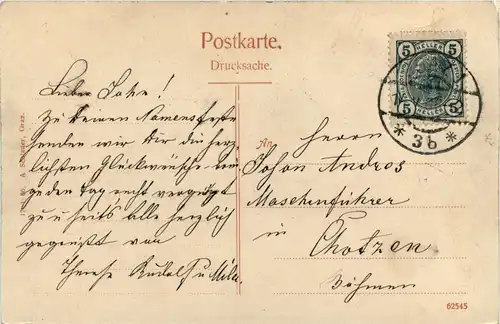 Postkarte.
Drucksache.
5 HELLER 5
5 5
* 3b *
Lieber Sohn!
Zu deinen Namensfeste
senden wir dir die herz-
lichsten Glückwünsche
den Tag recht vergnügt
zu u seits alle herzlich
gegrüßt von
Therese Rudolf u Mila
An
Herrn
Johan Andros
Maschenführer
in
Chotzen
Böhmen
Graz.
62545